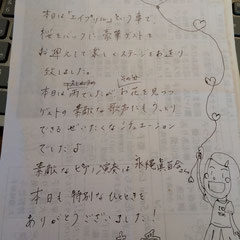 本日は"エイプリル"という事で、
桜をバックに豪華ゲストを
お迎えして楽しくステージをお送り
致しました。
本日は雨でしたが お花を見つつ
ゲストの素敵な歌声にもうっとり
できる、ぜいたくなシチュエーション
でしたよ
素敵なピアノ演奏は 永
本日も特別なひとときを
ありがとうございました!